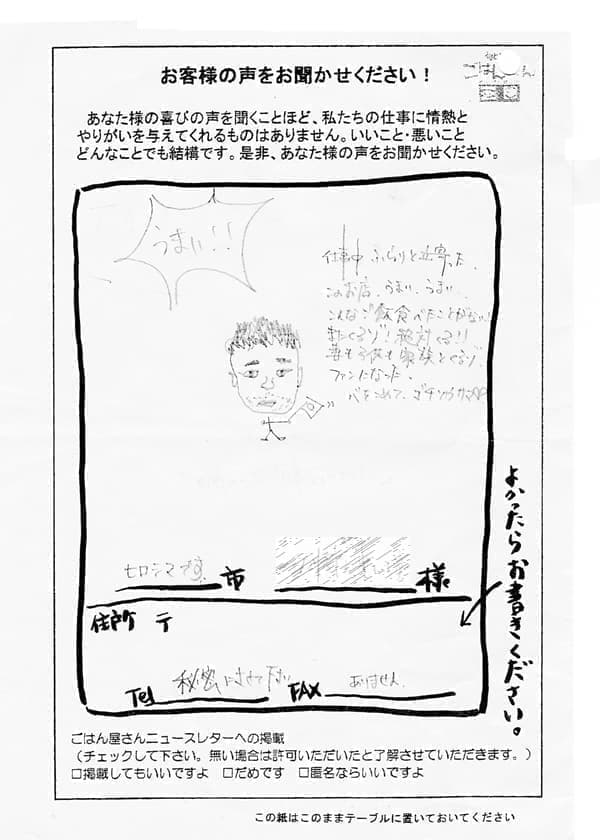 お客様の声をお聞かせください！
ごはん
あなた様の喜びの声を聞くことほど、私たちの仕事に情熱と
やりがいを与えてくれるものはありません。いいこと・悪いこと
どんなことでも結構です。是非、あなた様の声をお聞かせください。
うまい!!
仕事中 ふらりと立寄った、
このお店、うまい、うまい、
こんなご飯食べたことがない!
またくるゾ! 絶対くる!!
家族とくるゾ
ファンになった、
心をこめて、ゴチソウサマ
よかったらお書きください。
ヒロシマです 市
様
住所 〒
Tel 秘密にさせて下さい
FAX ありません
ごはん屋さんニュースレターへの掲載
（チェックして下さい。無い場合は許可いただいたと了解させていただきます。）
□掲載してもいいですよ □だめです □匿名ならいいですよ
この紙はこのままテーブルに置いておいてください